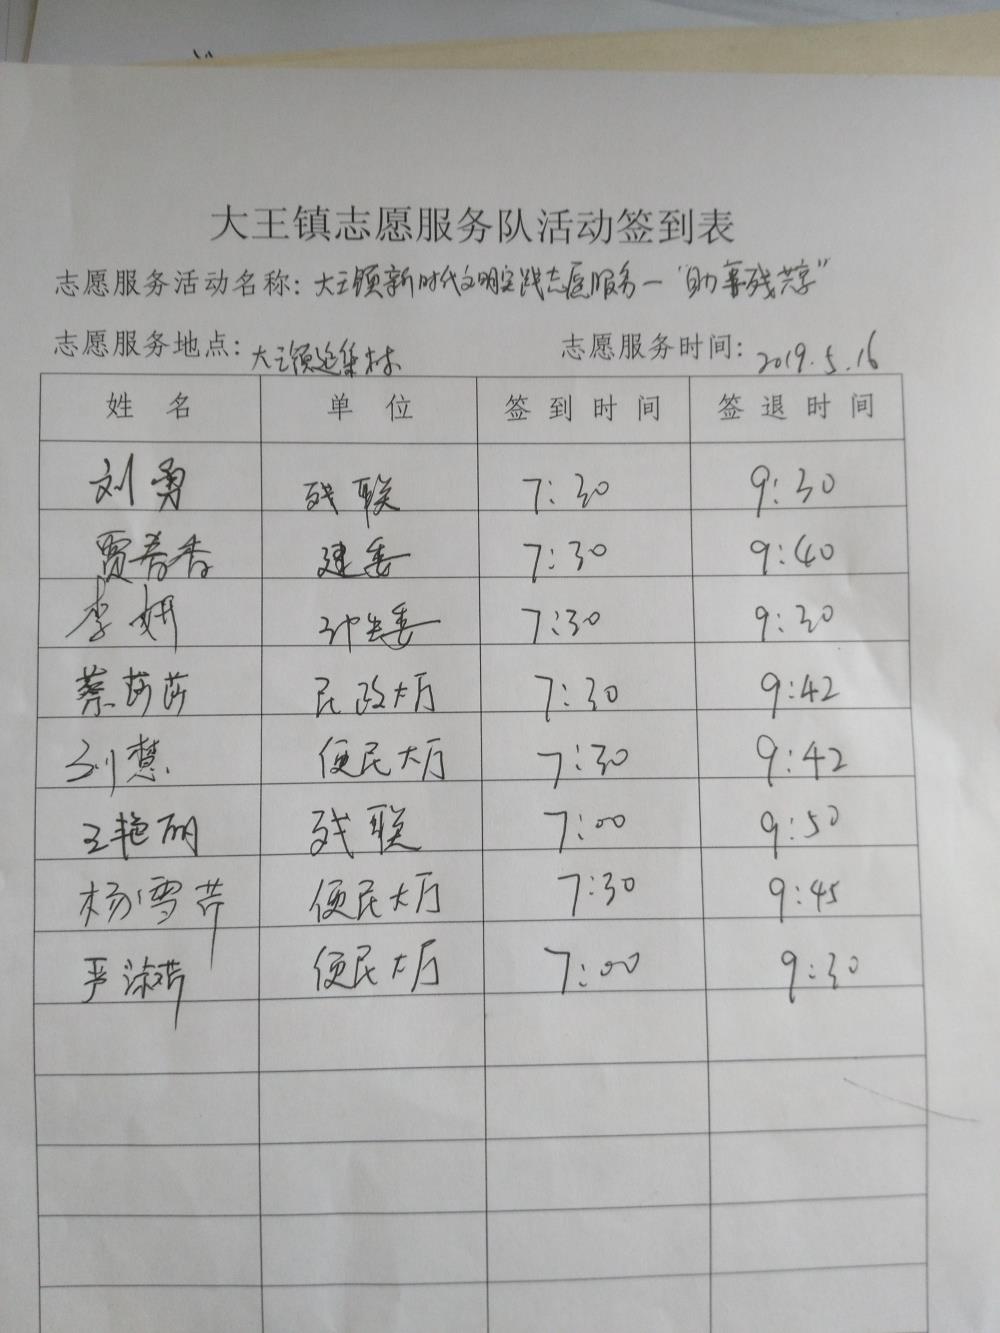 大王镇志愿服务队活动签到表
志愿服务活动名称：大王镇新时代文明实践志愿服务—"助残共享"
志愿服务地点：大王镇延集村 志愿服务时间：2019.5.16
姓 名 单 位 签 到 时 间 签 退 时 间
刘勇 残联 7:30 9:30
贾春香 建委 7:30 9:40
李妍 计生委 7:30 9:30
蔡莎莎 民政大厅 7:30 9:42
刘慧 便民大厅 7:30 9:42
王艳丽 残联 7:00 9:50
杨雪芹 便民大厅 7:30 9:45
严淑芹 便民大厅 7:00 9:30